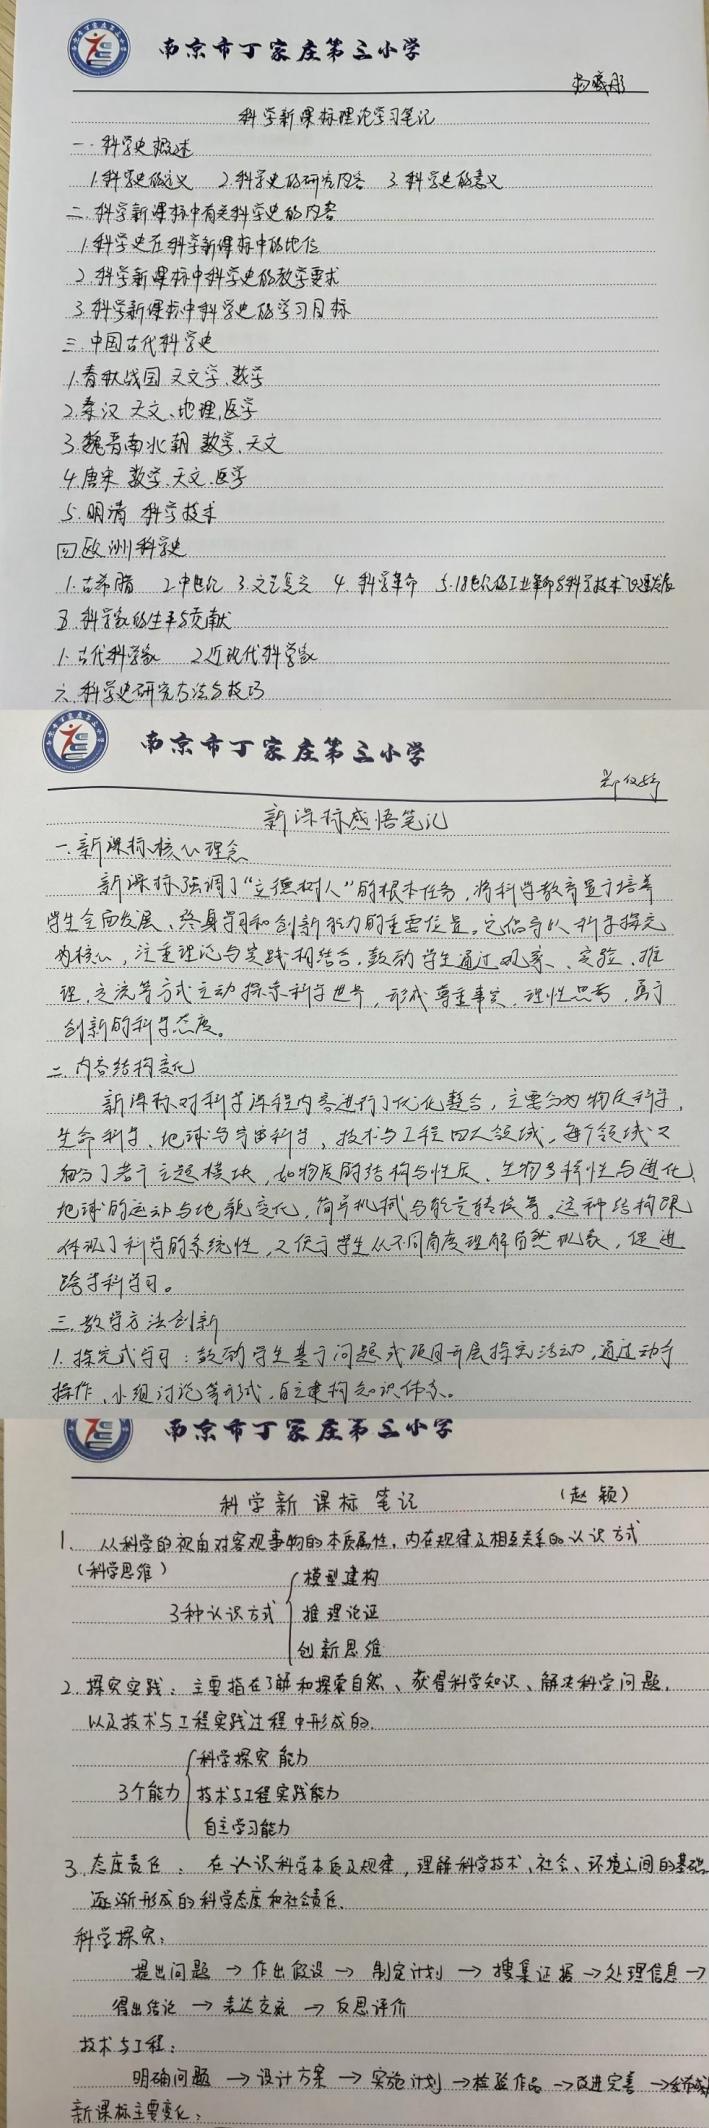 南京市丁家庄第三小学
科学新课标理论学习笔记
一.科学史概述
1.科学史的定义 2.科学史的研究内容 3.科学史的意义
二.科学新课标中有关科学史的内容
1.科学史在科学新课标中的地位
2.科学新课标中科学史的教学要求
3.科学新课标中科学史的学习目标
三.中国古代科学史
1.春秋战国 天文学、数学
2.秦汉 天文、地理、医学
3.魏晋南北朝 数学、天文
4.唐宋 数学、天文、医学
5.明清 科学技术
四 欧洲科学史
1.古希腊 2.中世纪 3.文艺复兴 4.科学革命 5.18世纪的工业革命与科学技术飞速发展
五.科学家的生平与贡献
1.古代科学家 2.近现代科学家
六.科学史研究方法与技巧
南京市丁家庄第三小学
新课标感悟笔记
一.新课标核心理念
新课标强调了“立德树人”的根本任务，将科学教育置于培养
学生全面发展、终身学习和创新能力的重要位置。它倡导以科学探究
为核心，注重理论与实践相结合，鼓励学生通过观察、实验、推
理、交流等方式主动探索科学世界，形成尊重事实、理性思考、勇于
创新的科学态度。
二.内容结构变化
新课标对科学课程内容进行了优化整合，主要分为物质科学、
生命科学、地球与宇宙科学、技术与工程四大领域，每个领域又
细分了若干主题模块，如物质的结构与性质、生物多样性与进化、
地球的运动与地貌变化，简单机械与能量转换等。这种结构既
体现了科学的系统性，又便于学生从不同角度理解自然现象，促进
跨学科学习。
三.教学方法创新
1.探究式学习：鼓励学生基于问题或项目开展探究活动，通过动手
操作、小组讨论等形式，自主建构知识体系。
南京市丁家庄第三小学
科学新课标笔记 （赵颖）
1、从科学的视角对客观事物的本质属性，内在规律及相互关系的认识方式
（科学思维）
3种认识方式 { 模型建构
推理论证
创新思维
2.探究实践：主要指在了解和探索自然、获得科学知识、解决科学问题，
以及技术与工程实践过程中形成的.
3个能力 { 科学探究能力
技术与工程实践能力
自主学习能力
3.态度责任：在认识科学本质及规律，理解科学技术、社会、环境之间的基础
逐渐形成的科学态度和社会责任.
科学探究：
提出问题 → 作出假设 → 制定计划 → 搜集证据 → 处理信息 →
得出结论 → 表达交流 → 反思评价
技术与工程：
明确问题 → 设计方案 → 实施计划 → 检验作品 → 改进完善 →
新课标主要变化：